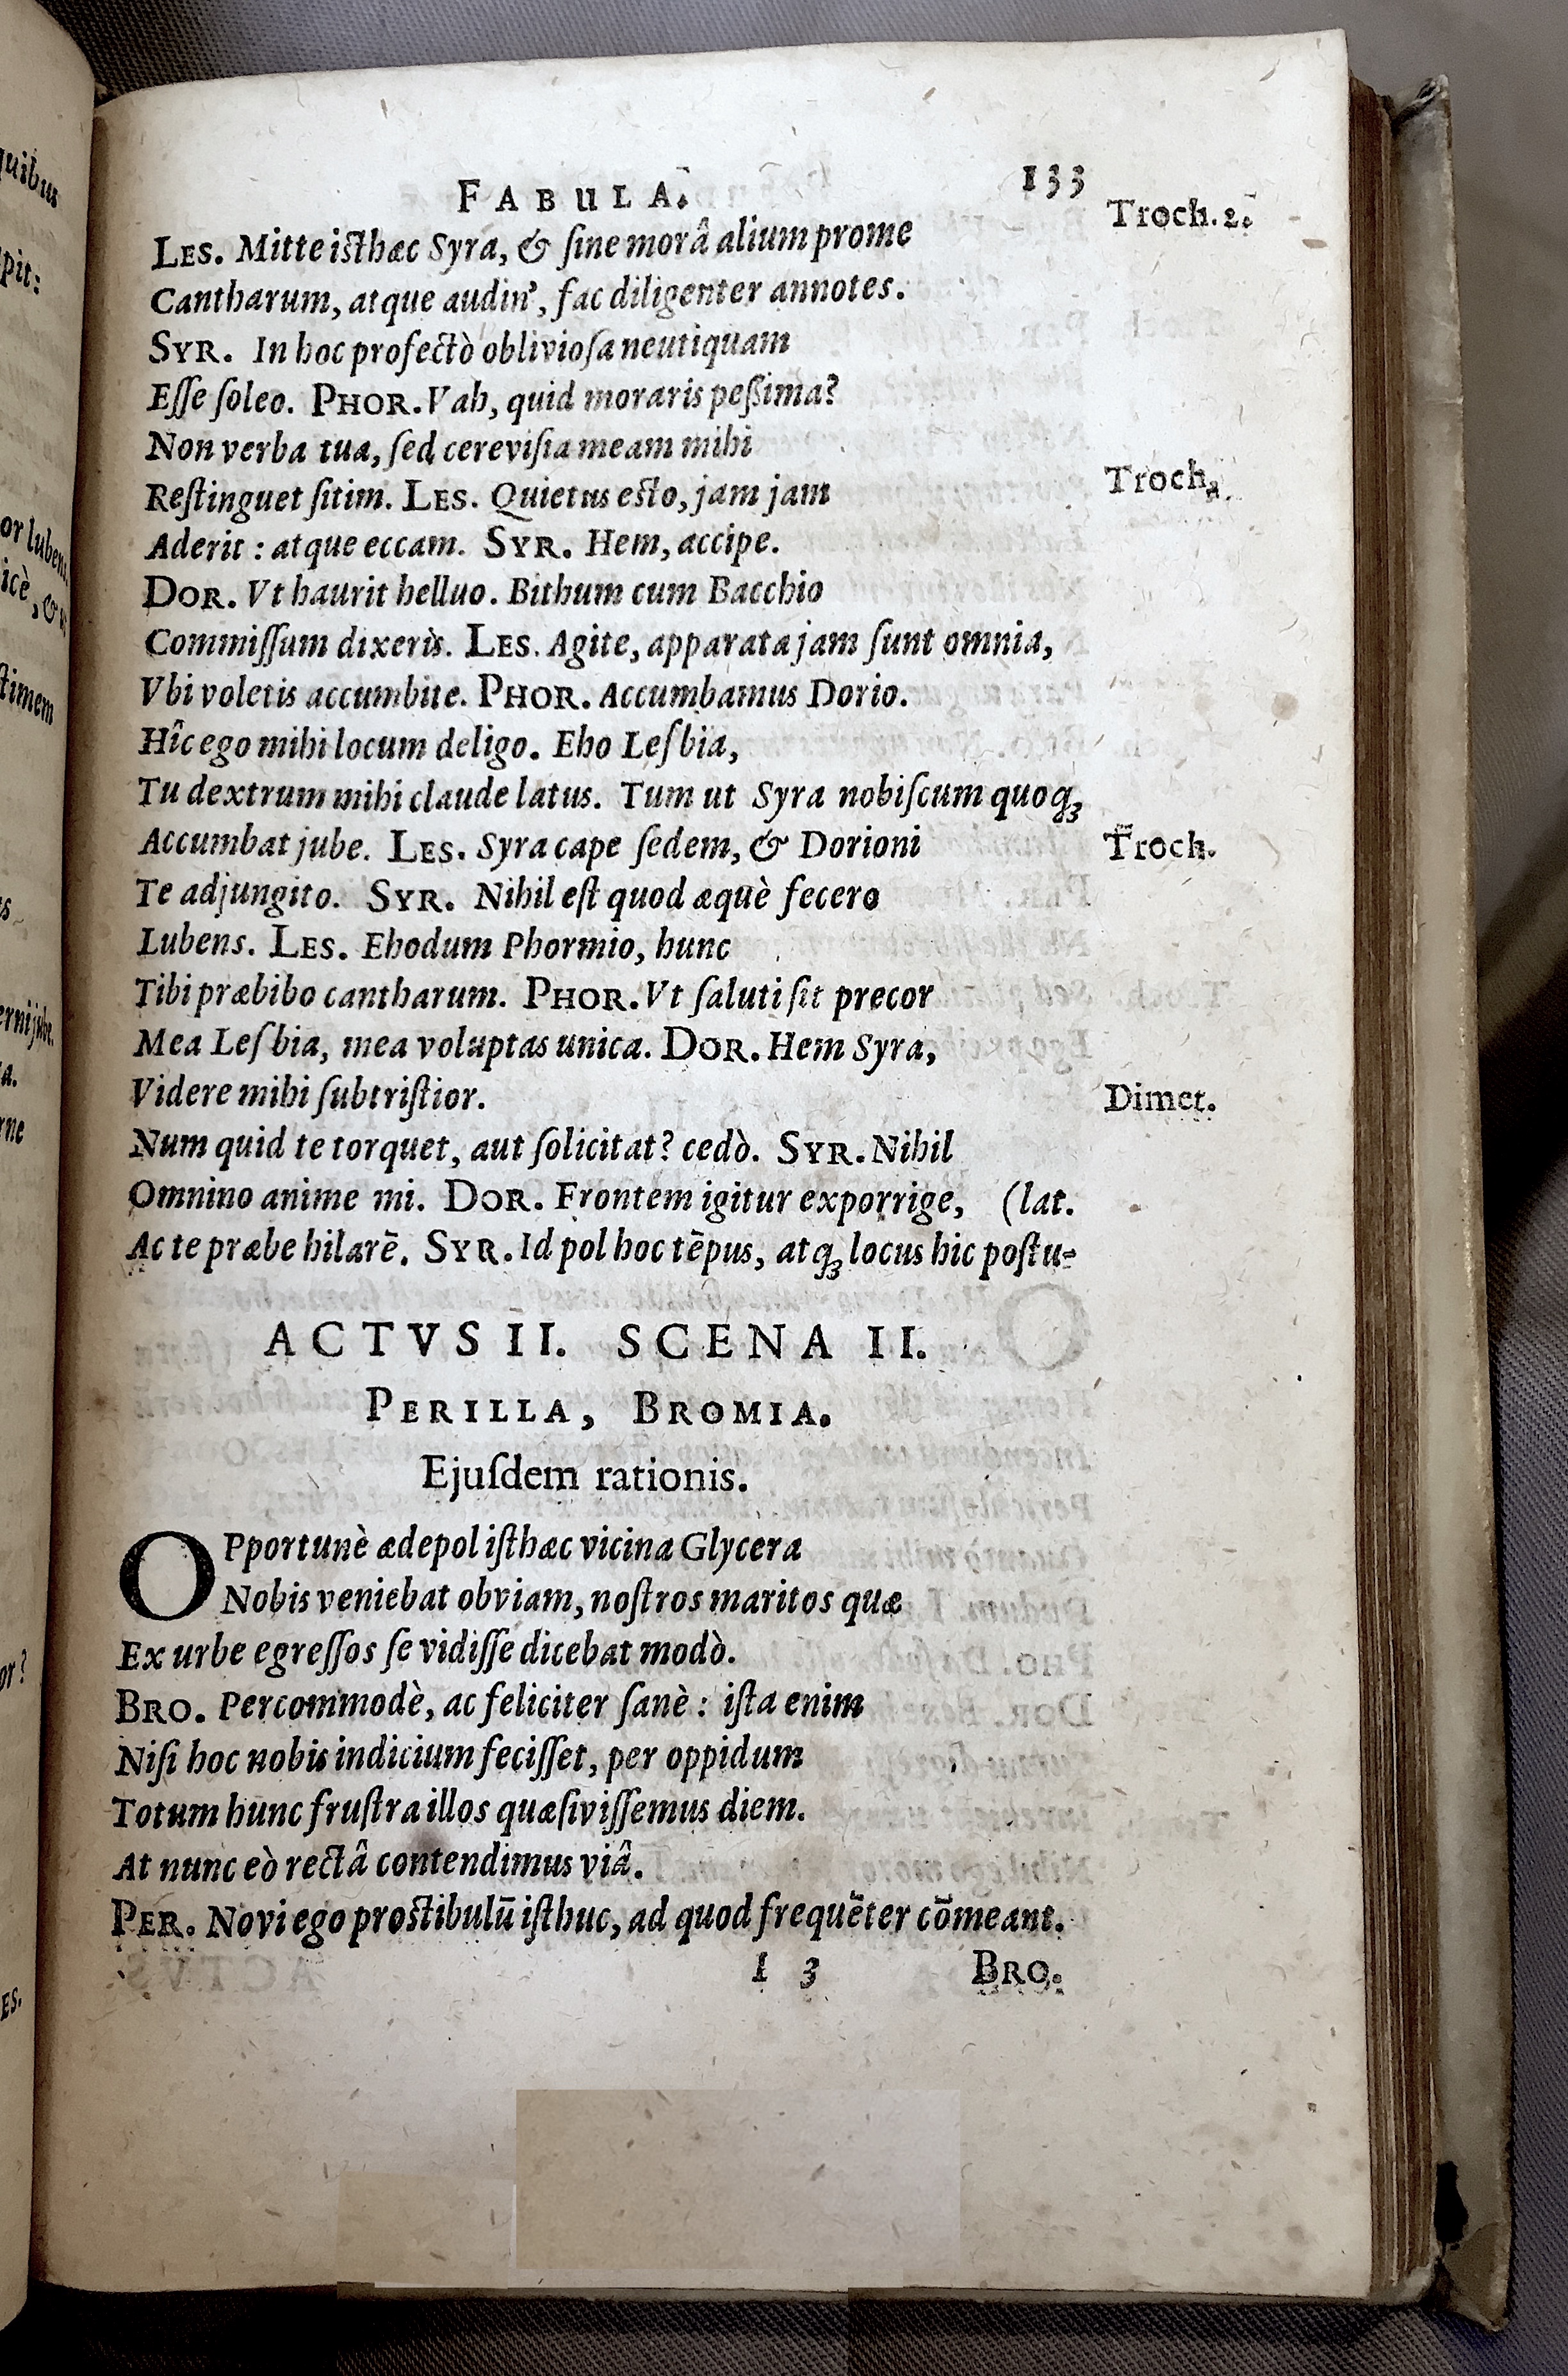 FABULA. 133
LES. Mitte isthæc Syra, & ſine morâ alium prome Troch. 2.
Cantharum, atque audin', fac diligenter annotes.
SYR. In hoc profectò oblivioſa neutiquam
Eſſe ſoleo. PHOR. Vah, quid moraris peßima?
Non verba tua, ſed cereviſia meam mihi
Reſtinguet ſitim. LES. Quietus esto, jam jam Troch.
Aderit : atque eccam. SYR. Hem, accipe.
DOR. Vt haurit helluo. Bithum cum Bacchio
Commiſſum dixeris. LES. Agite, apparata jam ſunt omnia,
Vbi voletis accumbite. PHOR. Accumbamus Dorio.
Hîc ego mihi locum deligo. Eho Leſbia,
Tu dextrum mihi claude latus. Tum ut Syra nobiſcum quoqꝫ
Accumbat jube. LES. Syra cape ſedem, & Dorioni Troch.
Te adjungito. SYR. Nihil eſt quod æquè fecero
Lubens. LES. Ehodum Phormio, hunc
Tibi præbibo cantharum. PHOR. Vt ſaluti ſit precor
Mea Leſbia, mea voluptas unica. DOR. Hem Syra,
Videre mihi ſubtriſtior. Dimet.
Num quid te torquet, aut ſolicitat? cedò. SYR. Nihil
Omnino anime mi. DOR. Frontem igitur exporrige, (lat.
Ac te præbe hilarē. SYR. Id pol hoc tēpus, atqꝫ locus hic poſtu-
ACTVS II. SCENA II.
PERILLA, BROMIA.
Ejuſdem rationis.
OPportunè ædepol iſthæc vicina Glycera
Nobis veniebat obviam, noſtros maritos quæ
Ex urbe egreſſos ſe vidiſſe dicebat modò.
BRO. Percommodè, ac feliciter ſanè : iſta enim
Niſi hoc nobis indicium feciſſet, per oppidum
Totum hunc fruſtra illos quæſiviſſemus diem.
At nunc eò rectâ contendimus viâ.
PER. Novi ego prostibulū iſthuc, ad quod frequēter cōmeant.
I 3 BRO.